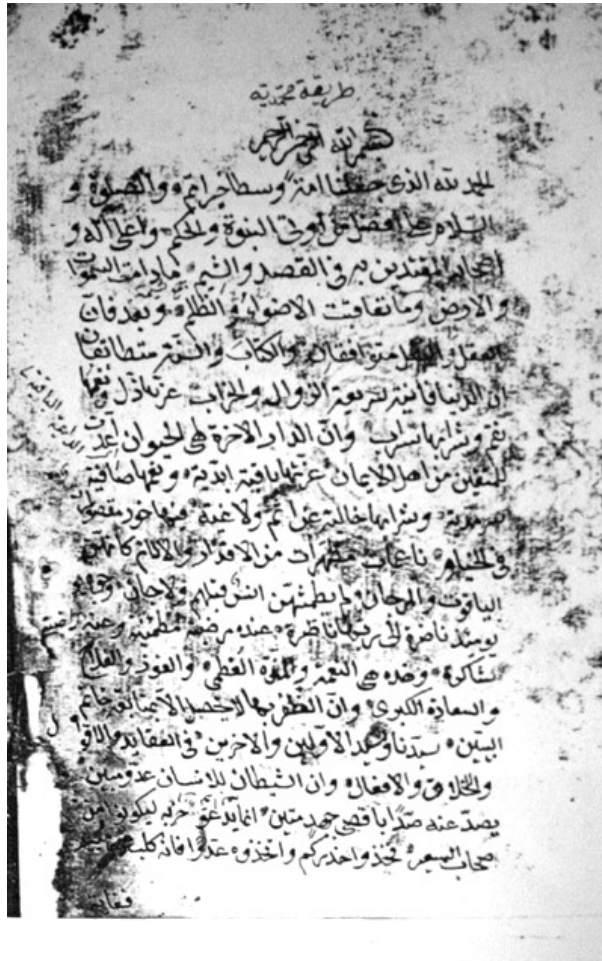 طريقة محمدية
بسم الله الرحمن الرحيم
الحمد لله الذي جعلنا امة وسطا خير امم والصلوة و
السلام على افضل من اوتى النبوة والحكم وعلى اله و
اصحابه المقتدين به فى القصد والشيم ما دامت السموات
والارض وما تعاقبت الاضواء والظلم وبعد فان
العقل والنقل متوافقان والكتاب والسنة متطابقان
ان الدنيا فانية سريعة الزوال والخراب عزها ذل ونعيمها
نقم وشرابها سراب وان الدار الاخرة لهى الحيوان اعدت
للمتقين من اهل الايمان عزتها باقية ابدية ونعمها صافية
سرمدية وشرابها خالية عن اثم ولاغية فيها حور مقصورات
فى الخيام ناعمات مطهرات من الاقذار والالام كانهن
الياقوت والمرجان لم يطمثهن انس قبلهم ولا جان وجوه
يومئذ ناضرة الى ربها ناظرة عنده مرضية مطمئنة وعنه راضية
شاكرة وهذه هى النعمة والعزة العظمى والفوز والفلاح
والسعادة الكبرى وان الظفر بها لا يحصل الا بمتابعة خاتم
النبيين سيدنا وسيد الاولين والاخرين فى العقايد والاقوال
والاخلاق والافعال وان الشيطان للانسان عدو مبين
يصد عنه صدا باقصى جهد متين انما يدعو حزبه ليكونوا من
اصحاب السعير فخذوا حذركم واتخذوه عدوا فانه كلب